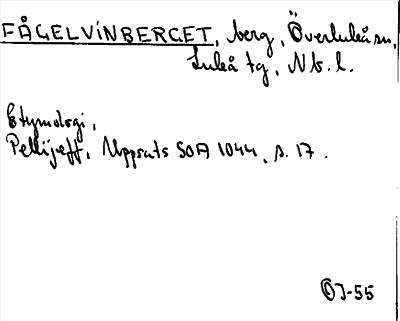 FÅGELVINBERGET, berg, Överluleå sn,
Luleå tg, Nb. l.
Etymologi,
Pellijeff, Uppsats SOA 1044, s. 17.
OJ-55